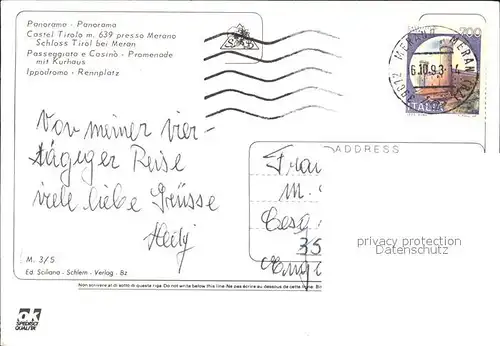 Panorama - Panorama
Castel Tirolo m. 639 presso Merano
Schloss Tirol bei Meran
Passeggiata e Casinò - Promenade
mit Kurhaus
Ippodromo - Rennplatz
200
ITALIA
39012 MERANO MERAN
6.10.93
Von meiner vier-
tägiger Reise
viele liebe Grüsse
ADDRESS
Frau
M.
35
privacy protection
Datenschutz
M. 3/5
Ed. Sciliana - Schlern - Verlag - Bz
Non scrivere al di sotto di questa riga. Do not write below this line. Ne pas écrire au dessous de cette ligne.
ok